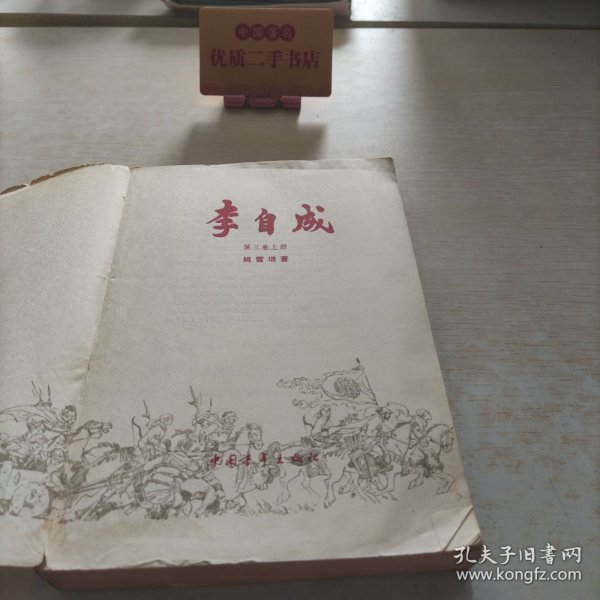 中国著名
优质二手书店
李自成
第三卷上册
姚雪垠著
中国青年出版社
孔夫子旧书网
www.kongfz.com